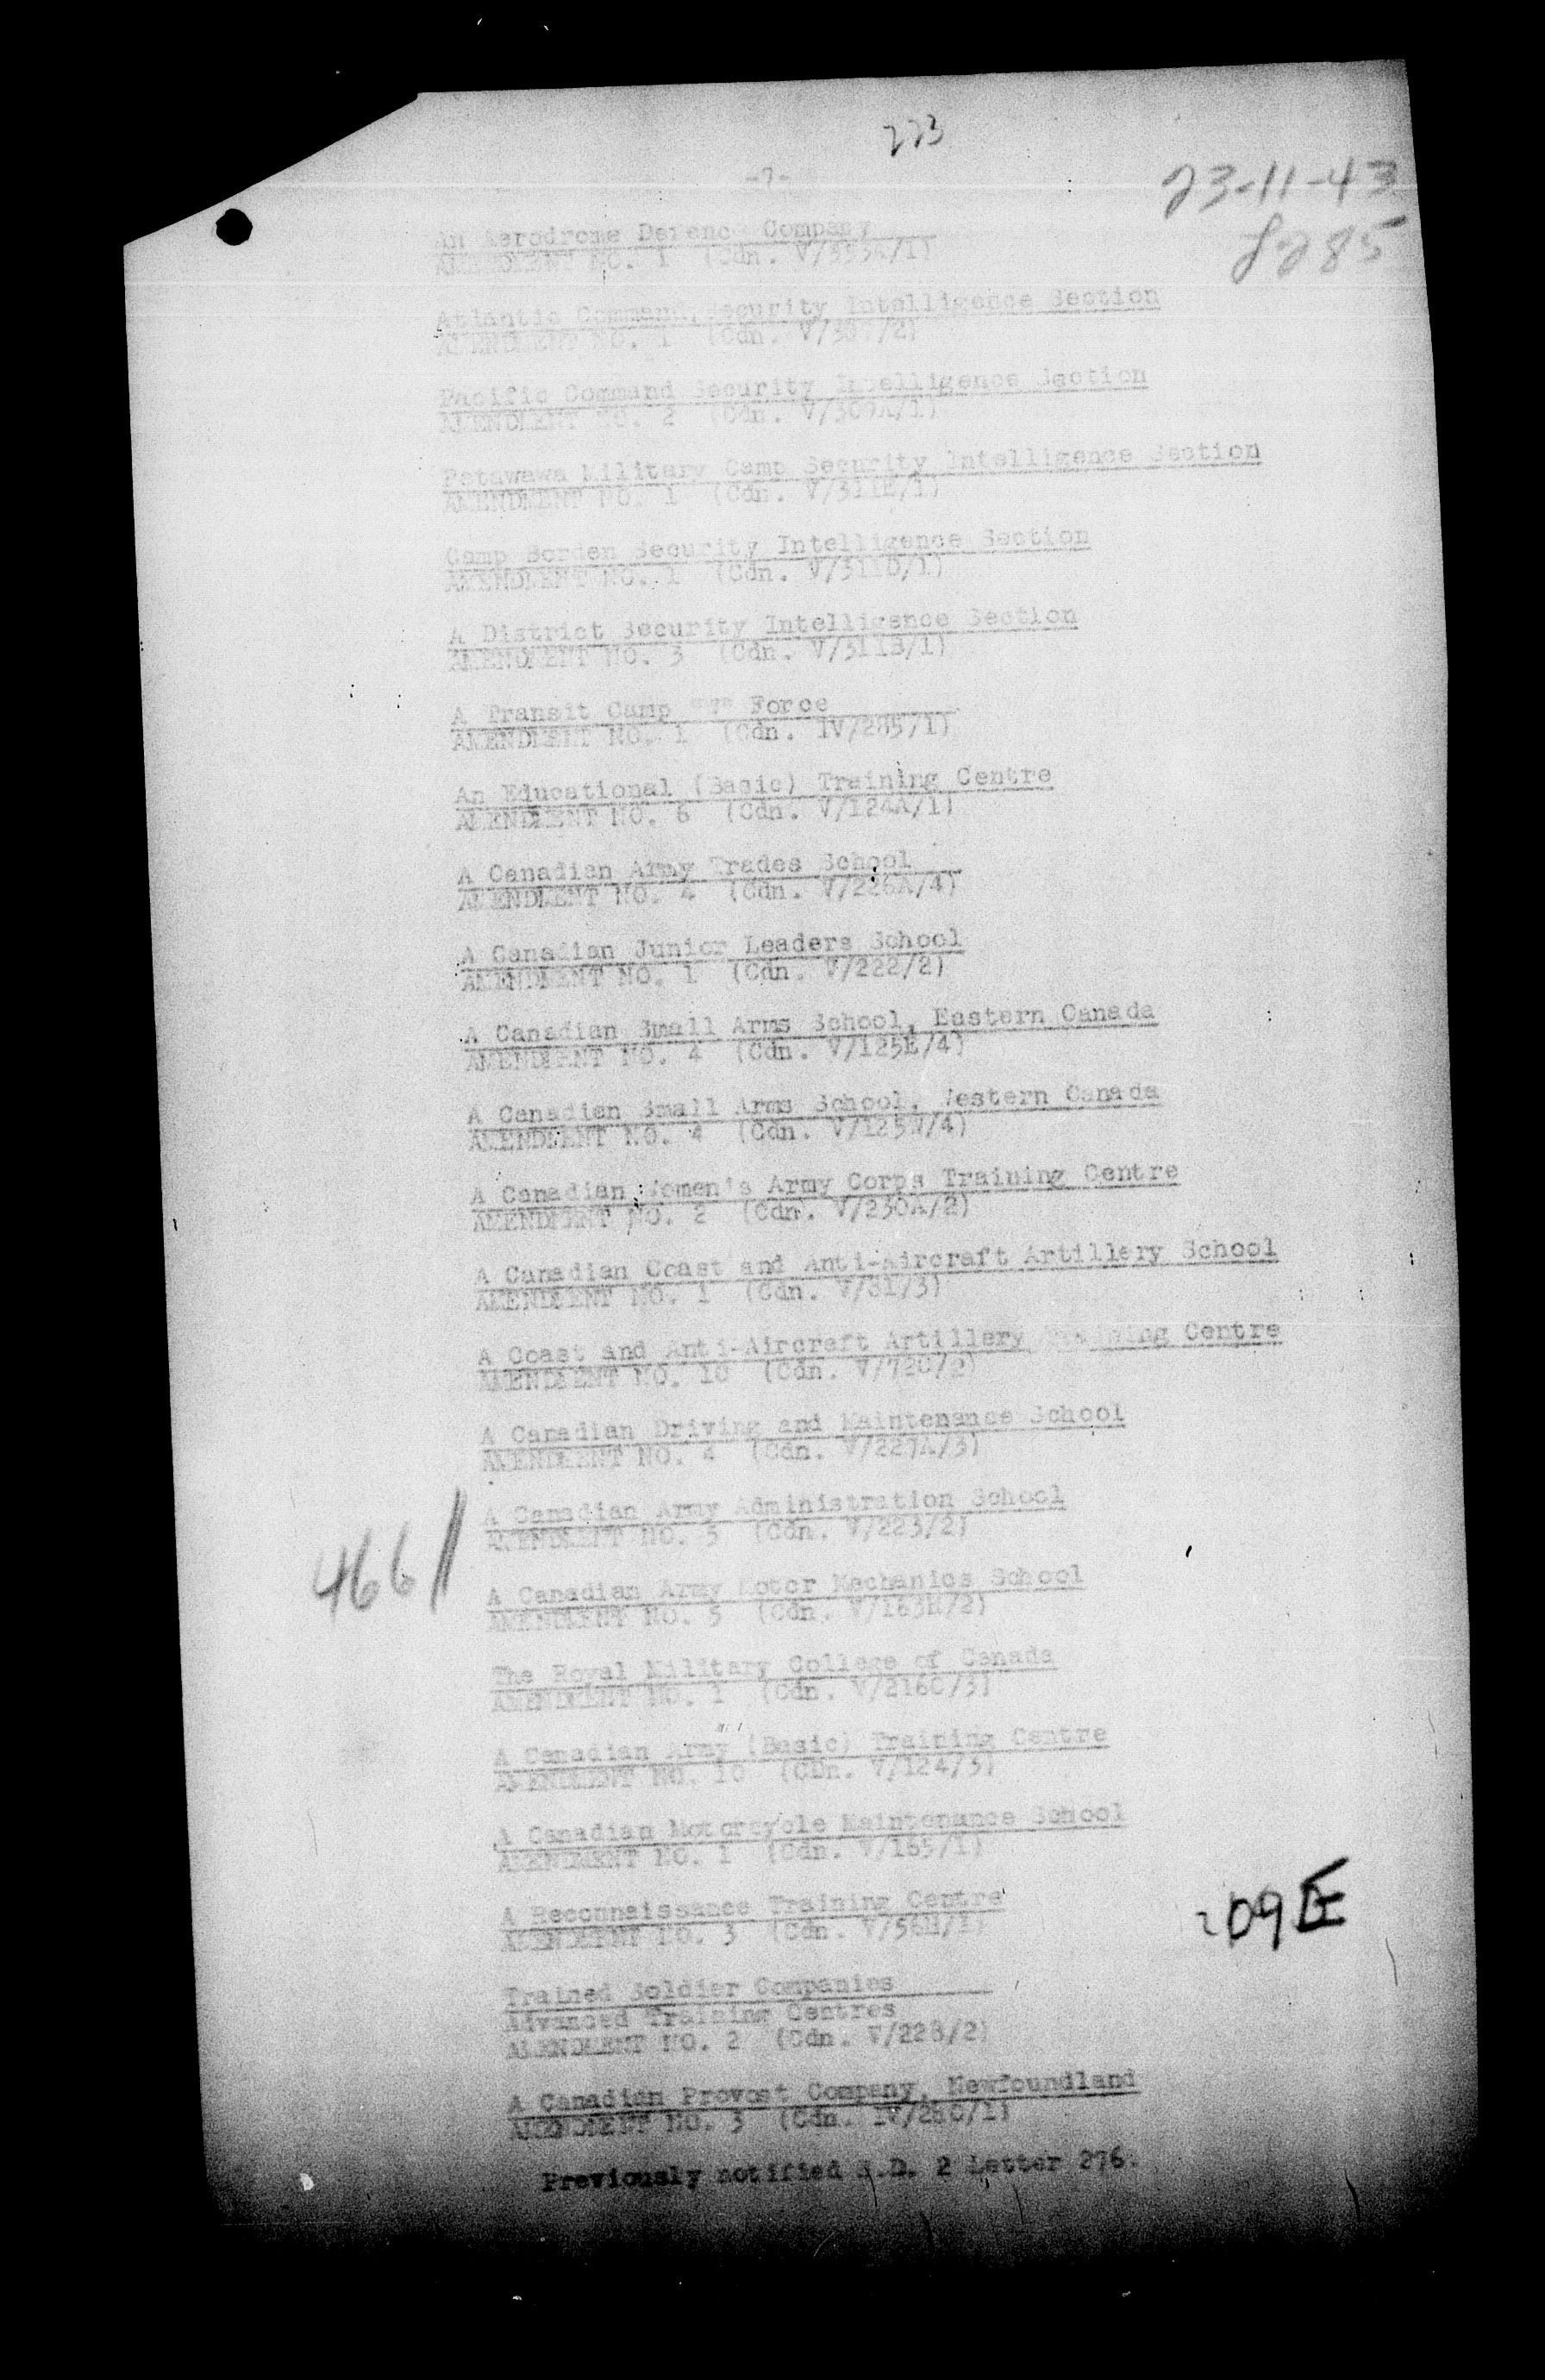 223
-7-
23-11-43
An Aerodrome Defence Company
AMENDMENT NO. 1 (Cdn.
Atlantic Command, Security Intelligence Section
AMENDMENT NO. 1 (Cdn.
Pacific Command Security Intelligence Section
AMENDMENT NO. 2 (Cdn.
Petawawa Military Camp Security Intelligence Section
AMENDMENT NO. 1 (Cdn. V/311E/1)
Camp Borden Security Intelligence Section
AMENDMENT NO. 1 (Cdn. V/311D/1)
A District Security Intelligence Section
AMENDMENT NO. 3 (Cdn. V/311B/1)
A Transit Camp "W" Force
AMENDMENT NO. 1 (Cdn. IV/285/1)
An Educational (Basic) Training Centre
AMENDMENT NO. 6 (Cdn. V/124A/1)
A Canadian Army Trades School
AMENDMENT NO. 4 (Cdn. V/226A/4)
A Canadian Junior Leaders School
AMENDMENT NO. 1 (Cdn. V/222/2)
A Canadian Small Arms School, Eastern Canada
AMENDMENT NO. 4 (Cdn. V/125E/4)
A Canadian Small Arms School, Western Canada
AMENDMENT NO. 4 (Cdn. V/125W/4)
A Canadian Women's Army Corps Training Centre
AMENDMENT NO. 2 (Cdn. V/230A/2)
A Canadian Coast and Anti-Aircraft Artillery School
AMENDMENT NO. 1 (Cdn. V/81/3)
A Coast and Anti-Aircraft Artillery Training Centre
AMENDMENT NO. 10 (Cdn. V/72C/2)
A Canadian Driving and Maintenance School
AMENDMENT NO. 4 (Cdn. V/227A/3)
A Canadian Army Administration School
AMENDMENT NO. 5 (Cdn. V/223/2)
466
A Canadian Army Motor Mechanics School
AMENDMENT NO. 5 (Cdn. V/163H/2)
The Royal Military College of Canada
AMENDMENT NO. 1 (Cdn. V/216C/3)
A Canadian Army (Basic) Training Centre
AMENDMENT NO. 10 (CDn. V/124/3)
A Canadian Motorcycle Maintenance School
AMENDMENT NO. 1 (Cdn. V/165/1)
A Reconnaissance Training Centre
AMENDMENT NO. 3 (Cdn. V/56H/1)
209
Trained Soldier Companies
Advanced Training Centres
AMENDMENT NO. 2 (Cdn. V/228/2)
A Canadian Provost Company, Newfoundland
AMENDMENT NO. 3 (Cdn.
Previously notified S.D. 2 Letter 276.